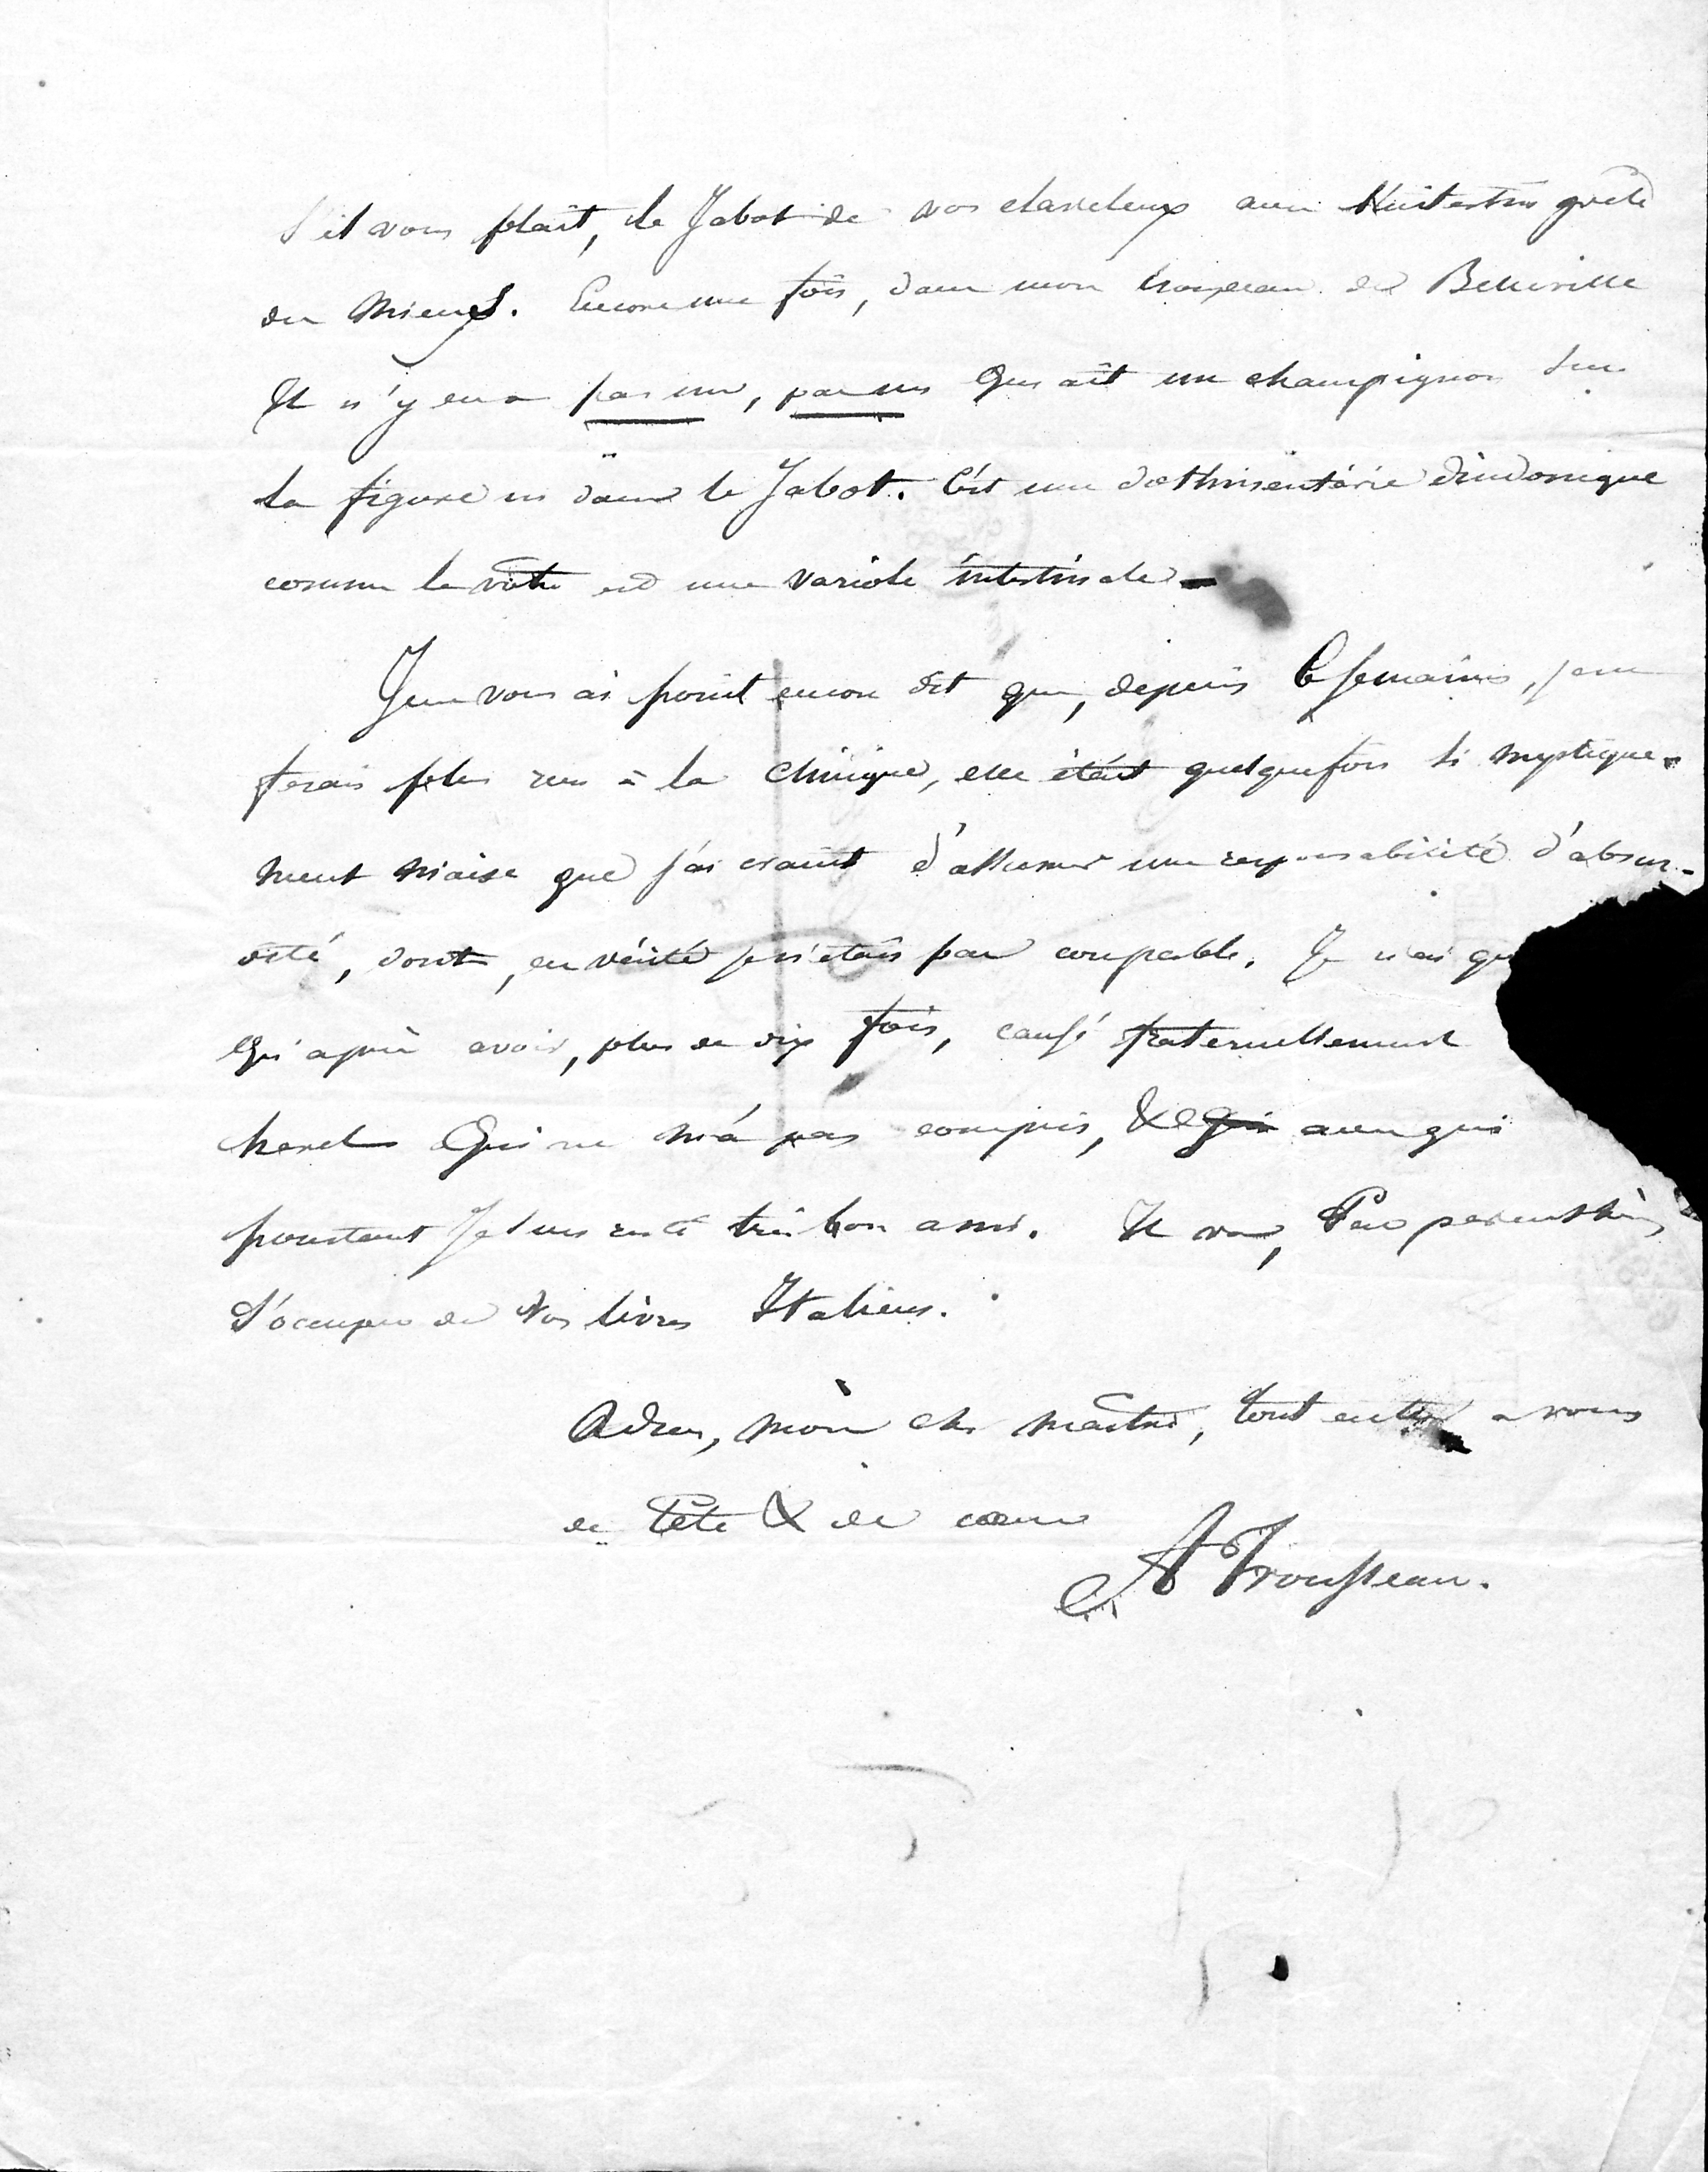 S'il vous plaît, le Jabot de vos claveleux avec l'intestin grêle
des miens. Encore une fois, dans mon troupeau de Belleville
Il n'y en a pas un, pas un Qui ait un champignon sur
la figure ni dans le Jabot. C'est une dothinentérie dindonique
comme la vôtre est une variole intestinale –
Je ne vous ai point encore dit que, depuis 6 semaines, je ne
ferais plus rien à la Clinique, elle était quelquefois si mystique-
ment niaise que j'ai craint d'assumer une responsabilité d'absur-
dité, dont, en vérité je n'étais pas coupable. Je n'ai
Qu'après avoir, plus de dix fois, causé fraternellement
Qui ne m'a pas compris, & avec qui
pourtant Je suis resté très bon ami. Il va,
S'occuper de Vos livres Italiens.
Adieu, mon cher maître, tout entier a vous
de tête & de cœur
A Trousseau.